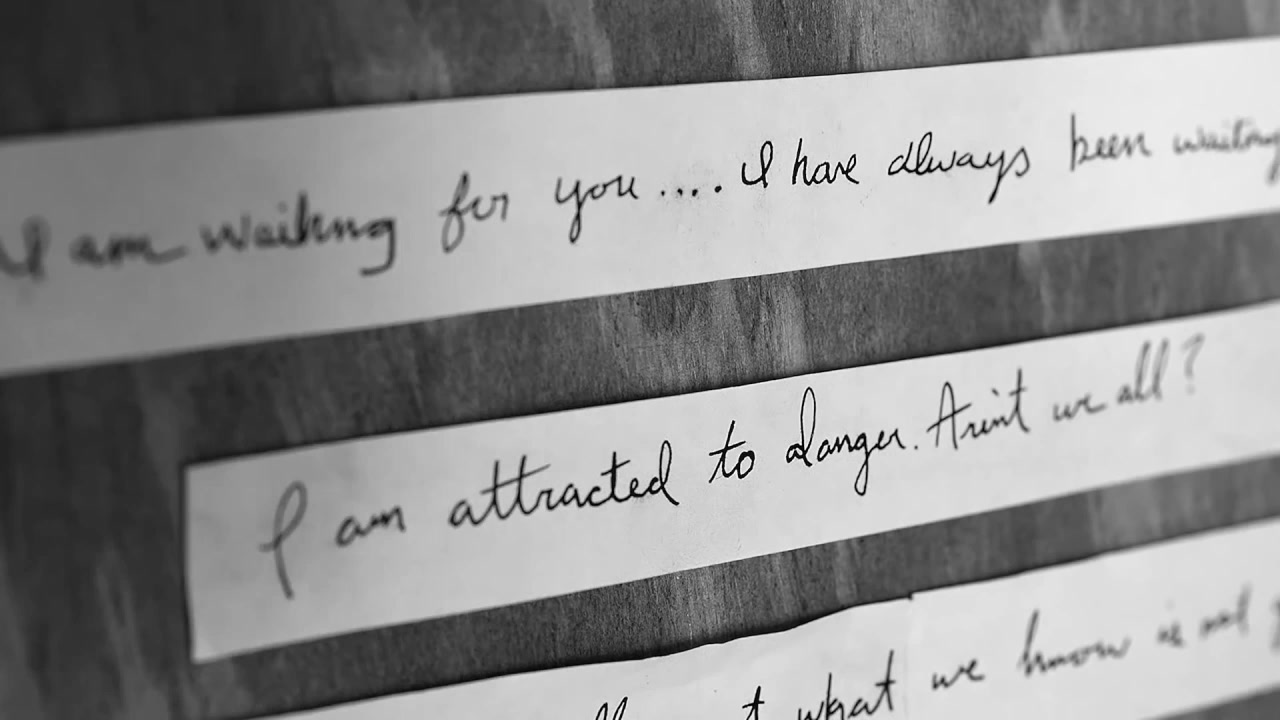 I am waiting for you .... I have always been waiting
I am attracted to danger. Arin't we all ?
what we know is not